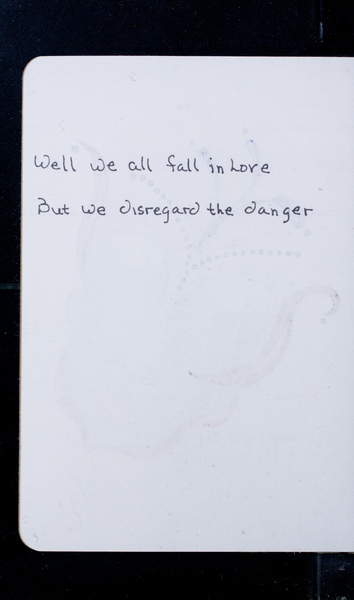 Well we all fall in Love
But we disregard the danger